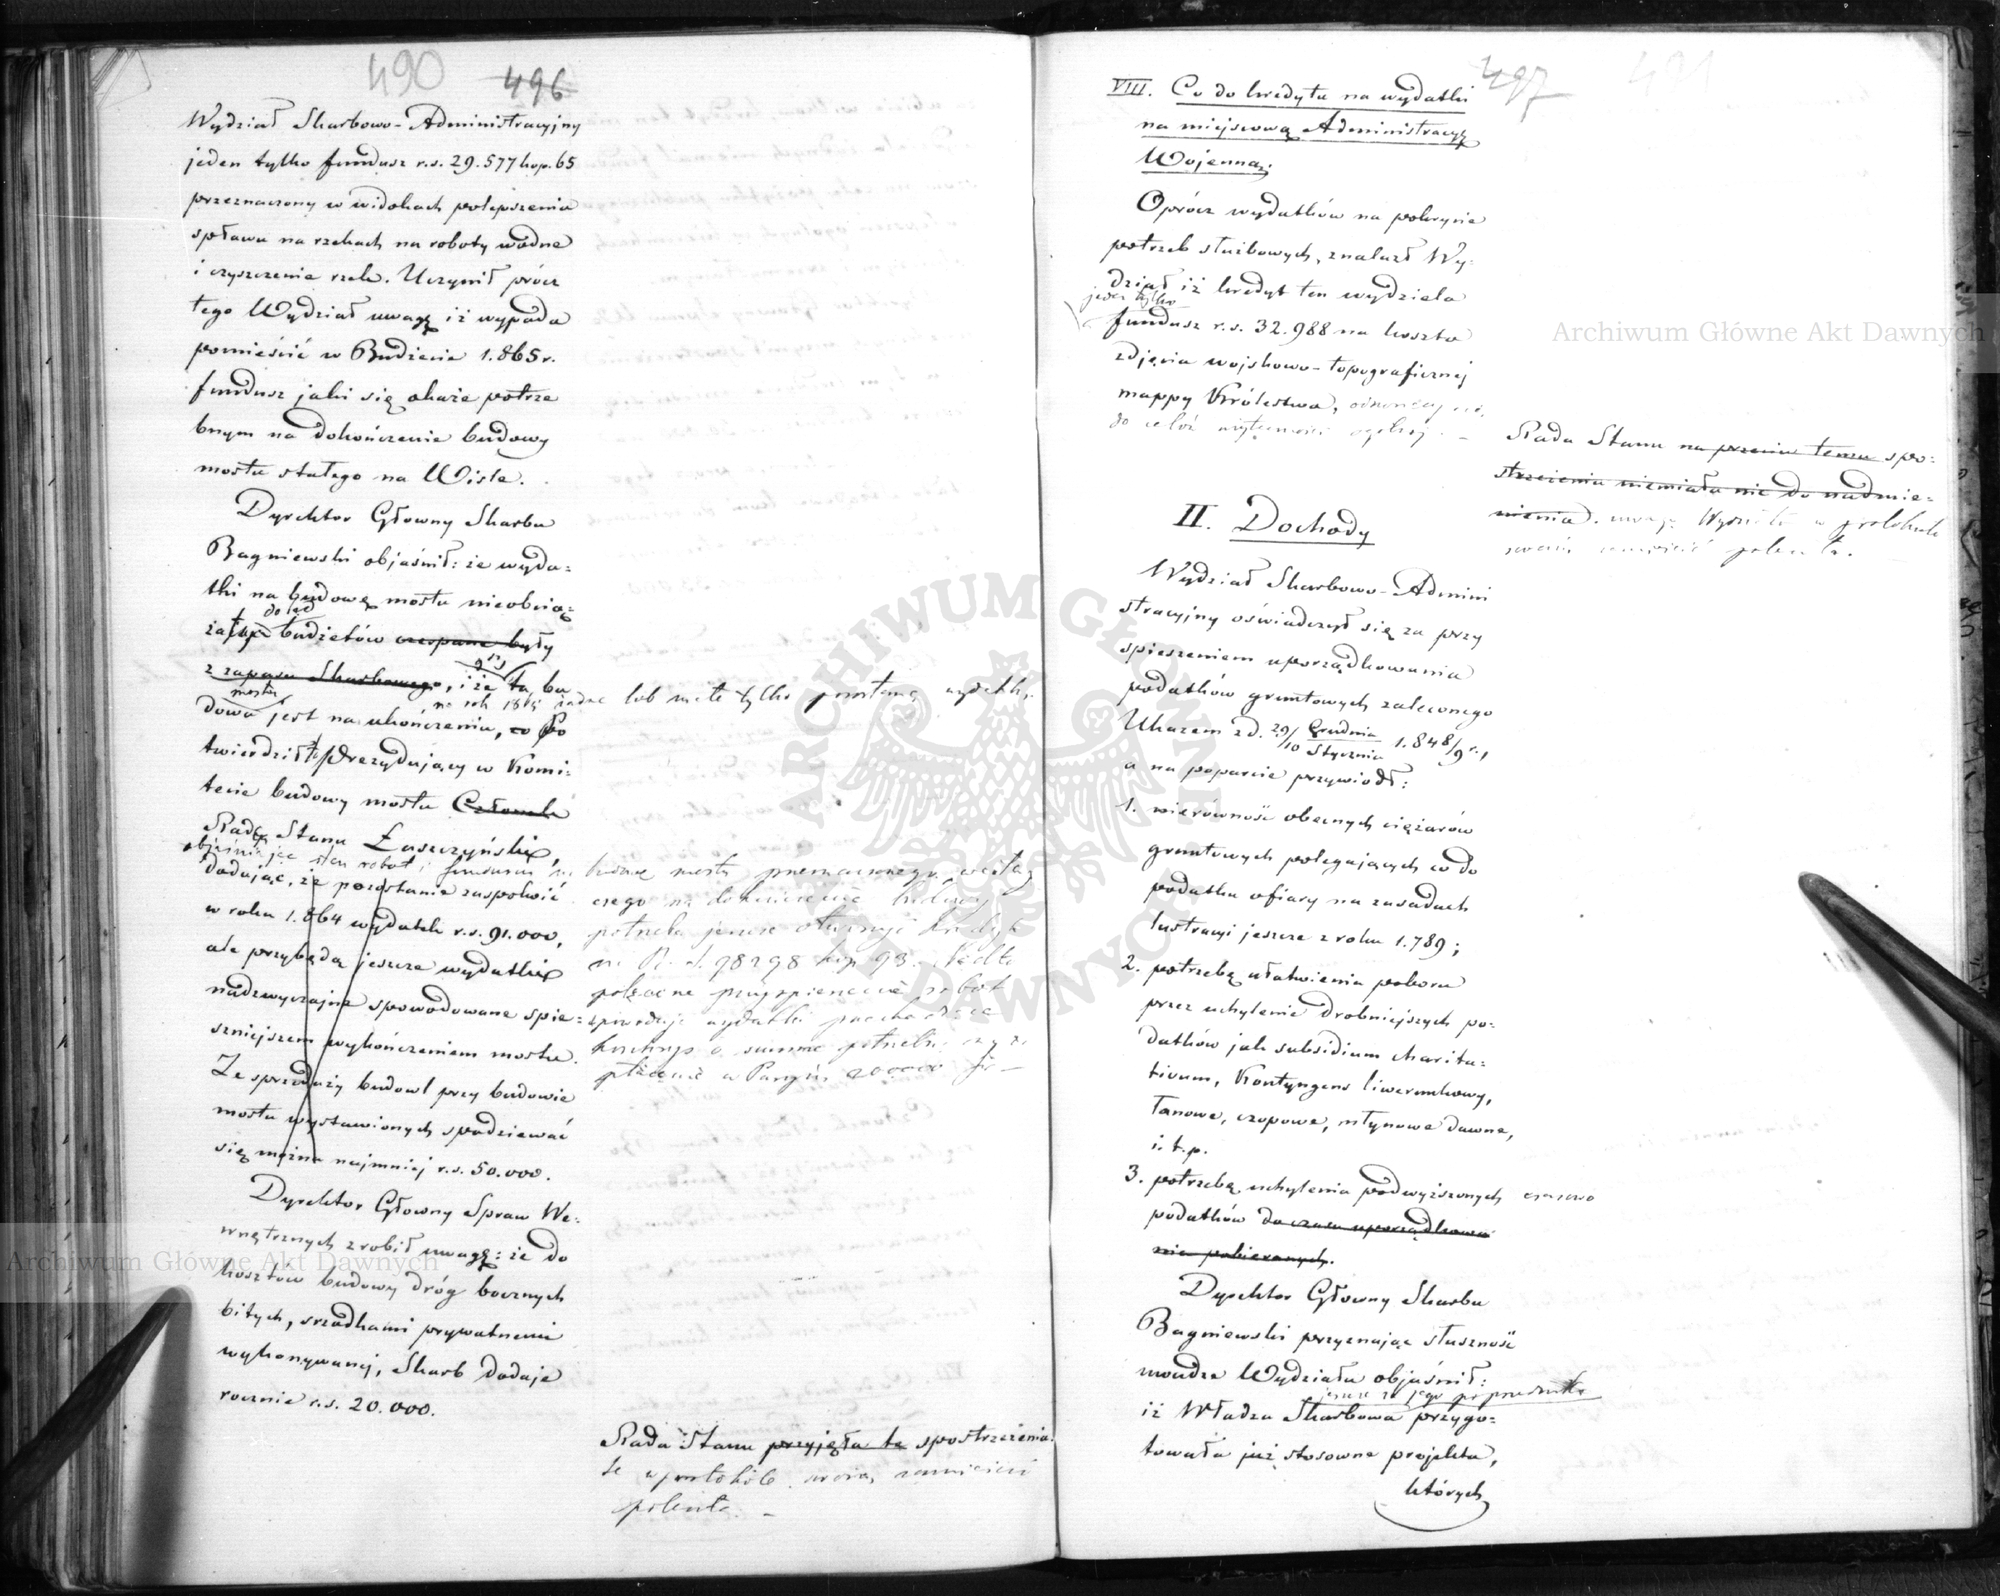 490 496
Wydział Skarbowo-Administracyjny
jeden tylko fundusz r.s. 29.577 kop. 65
przeznaczony w widokach polepszenia
spławu na rzekach na roboty wodne
i czyszczenie rzek. Uczynił prócz
tego Wydział uwagę iż wypada
pomieścić w Budżecie 1.865 r.
fundusz jaki się okaże potrze
bnym na dokończenie budowy
mostu stałego na Wiśle.
Dyrektor Głowny Skarbu
Bagniewski objaśnił: że wyda-
tki na budowę mostu nieobcią-
do
budżetów czerpane były
z zapasu Skarbowego, i że ta bu
mostu na rok 1865 żadne lub małe tylko pozostaną wydatki
dowa jest na ukończeniu, co Po
twierdził Prezydujący w Komi-
tecie budowy mostu Członek
Rady Stanu Łaszczyński,
objaśniając stan robot i fundusz na
dodając, że pozostanie zaspokoić
w roku 1.864 wydatek r.s. 91.000,
ale przybędą jeszcze wydatki
nadzwyczajne spowodowane spie-
szniejszem wykończeniem mostu.
Ze sprzedaży budowl przy budowie
mostu wystawionych spodziewać
się można najmniej r.s. 50.000.
budowę mostu przeznaczonego, wedłag
czego na dokończenie budowy
potrzeba jeszcze otworzyć kredyt
na R. s. 98298 kop 93.
robot
wydatki
a summę
w Paryżu 20000 fr
Dyrektor Głowny Spraw We-
wnętrznych zrobił uwagę: że do
kosztow budowy dróg bocznych
bitych, srzodkami prywatnemi
wykonywanej, Skarb dodaje
rocznie r.s. 20.000.
Rada Stanu przyjęła te spostrzeżenia
te w protokóle zamieścić
poleciła.
497 491
VIII. Co do kredytu na wydatki
na miejscową Administracyę
Wojenną.
Oprócz wydatków na pokrycie
potrzeb służbowych, znalazł Wy-
dział iż kredyt ten wydziela
jeden tylko
fundusz r.s. 32.988 na koszta
zdjęcia wojskowo-topograficznej
mappy Królestwa,
do celów ogólnej.
Rada Stanu na przeciw temu spo-
strzeżeniu niemiała nic do nadmie-
nienia. uwagę Wydziału w protokule
zamieścić poleciła.
II. Dochody
Wydział Skarbowo-Admini
stracyjny oświadczył się za przy
spieszeniem uporządkowania
podatków gruntowych zaleconego
Ukazem z d. 29/10 Grudnia/Stycznia 1.848/9 r.,
a na poparcie przywiódł:
1. nierówność obecnych ciężarów
gruntowych polegających co do
podatku ofiary na zasadach
lustracyi jeszcze z roku 1.789;
2. potrzebę ułatwienia poboru
przez uchylenie drobniejszych po-
datków jak subsidium charita-
tivum, Kontyngens liwerunkowy,
łanowe, czopowe, młynowe dawne,
i. t. p.
3. potrzebę uchylenia podwyższonych czasowo
podatków do czasu uporządkowa
nia pobieranych.
Dyrektor Głowny Skarbu
Bagniewski przyznając słuszność
wniosku Wydziału objaśnił:
jeszcze za jego poprzednika
iż Władza Skarbowa przygo-
towała już stosowne projekta,
których
Archiwum Główne Akt Dawnych
Archiwum Główne Akt Dawnych
ARCHIWUM GŁÓWNE AKT DAWNYCH